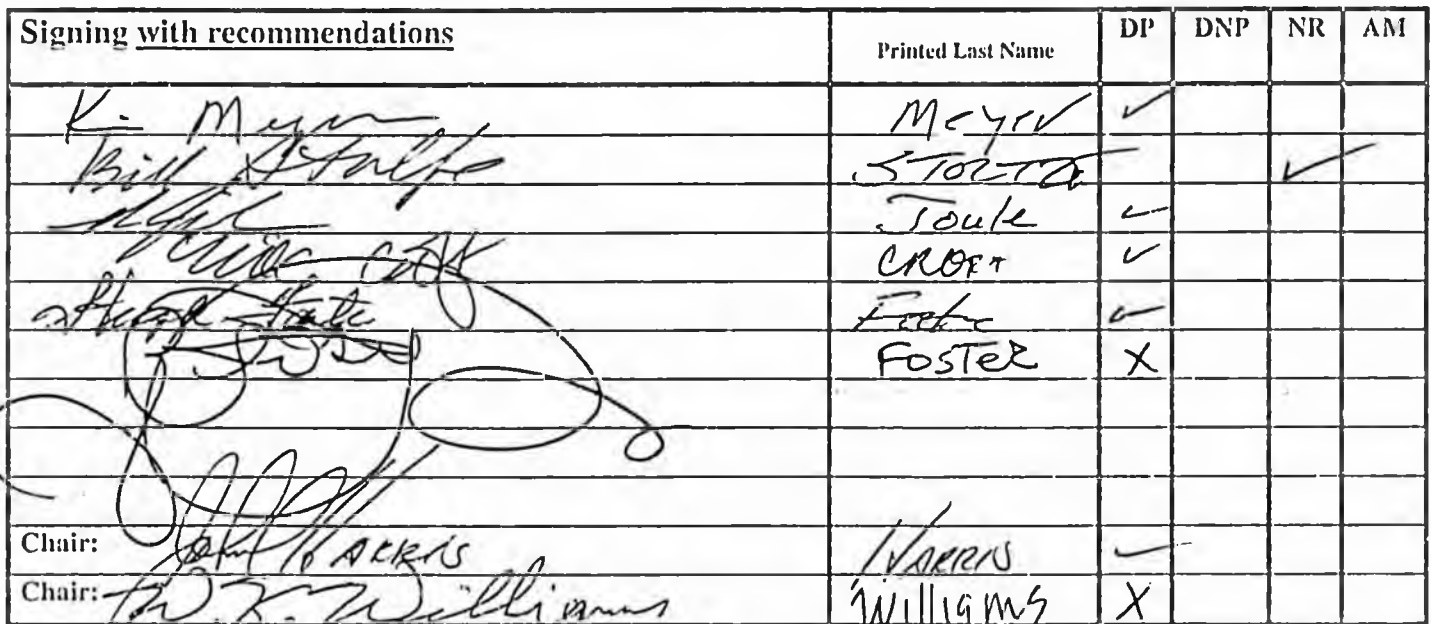 Signing with recommendations Printed Last Name DP DNP NR AM
K. Meyer Meyer ✓
Bill Stoltze STOLTZE ✓
Joule ✓
Croft CROFT ✓
✓
FOSTER X
Chair: John HARRIS HARRIS ✓
Chair: W. K. Williams Williams X